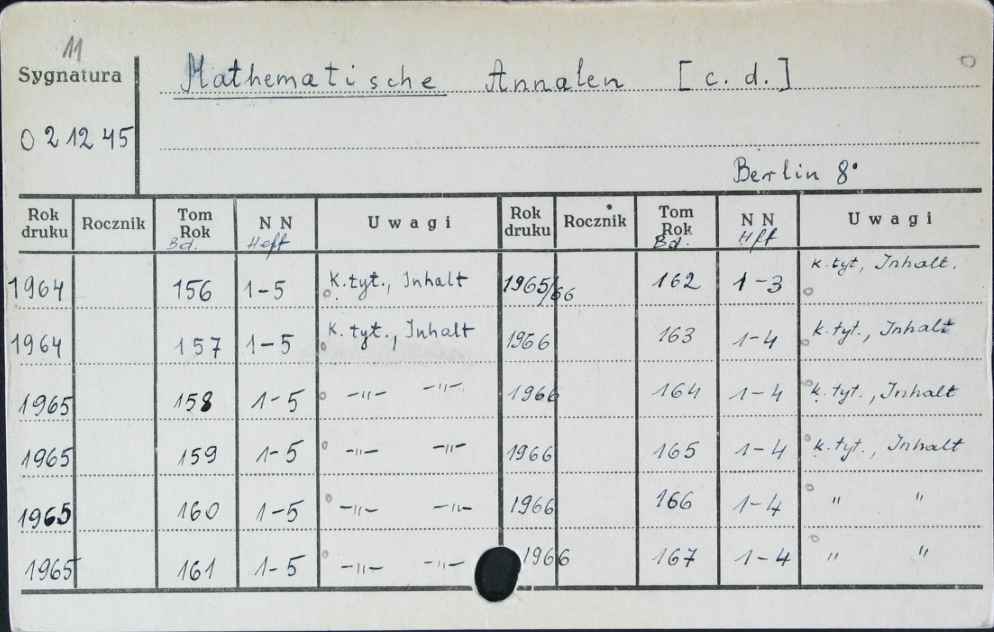 11
Sygnatura
Mathematische Annalen [c.d.]
0 2 12 45
Berlin 8°
Rok druku Rocznik Tom Rok Bd. N N Heft Uwagi Rok druku Rocznik Tom Rok Bd. N N Hft Uwagi
1964 156 1-5 k.tyt., Inhalt 1965/66 162 1-3 k.tyt, Inhalt.
1964 157 1-5 k. tyt., Inhalt 1966 163 1-4 k.tyt., Inhalt
1965 158 1-5 -"- -"- 1966 164 1-4 k.tyt., Inhalt
1965 159 1-5 -"- -"- 1966 165 1-4 k.tyt., Inhalt
1965 160 1-5 -"- -"- 1966 166 1-4 " "
1965 161 1-5 -"- -"- 1966 167 1-4 " "